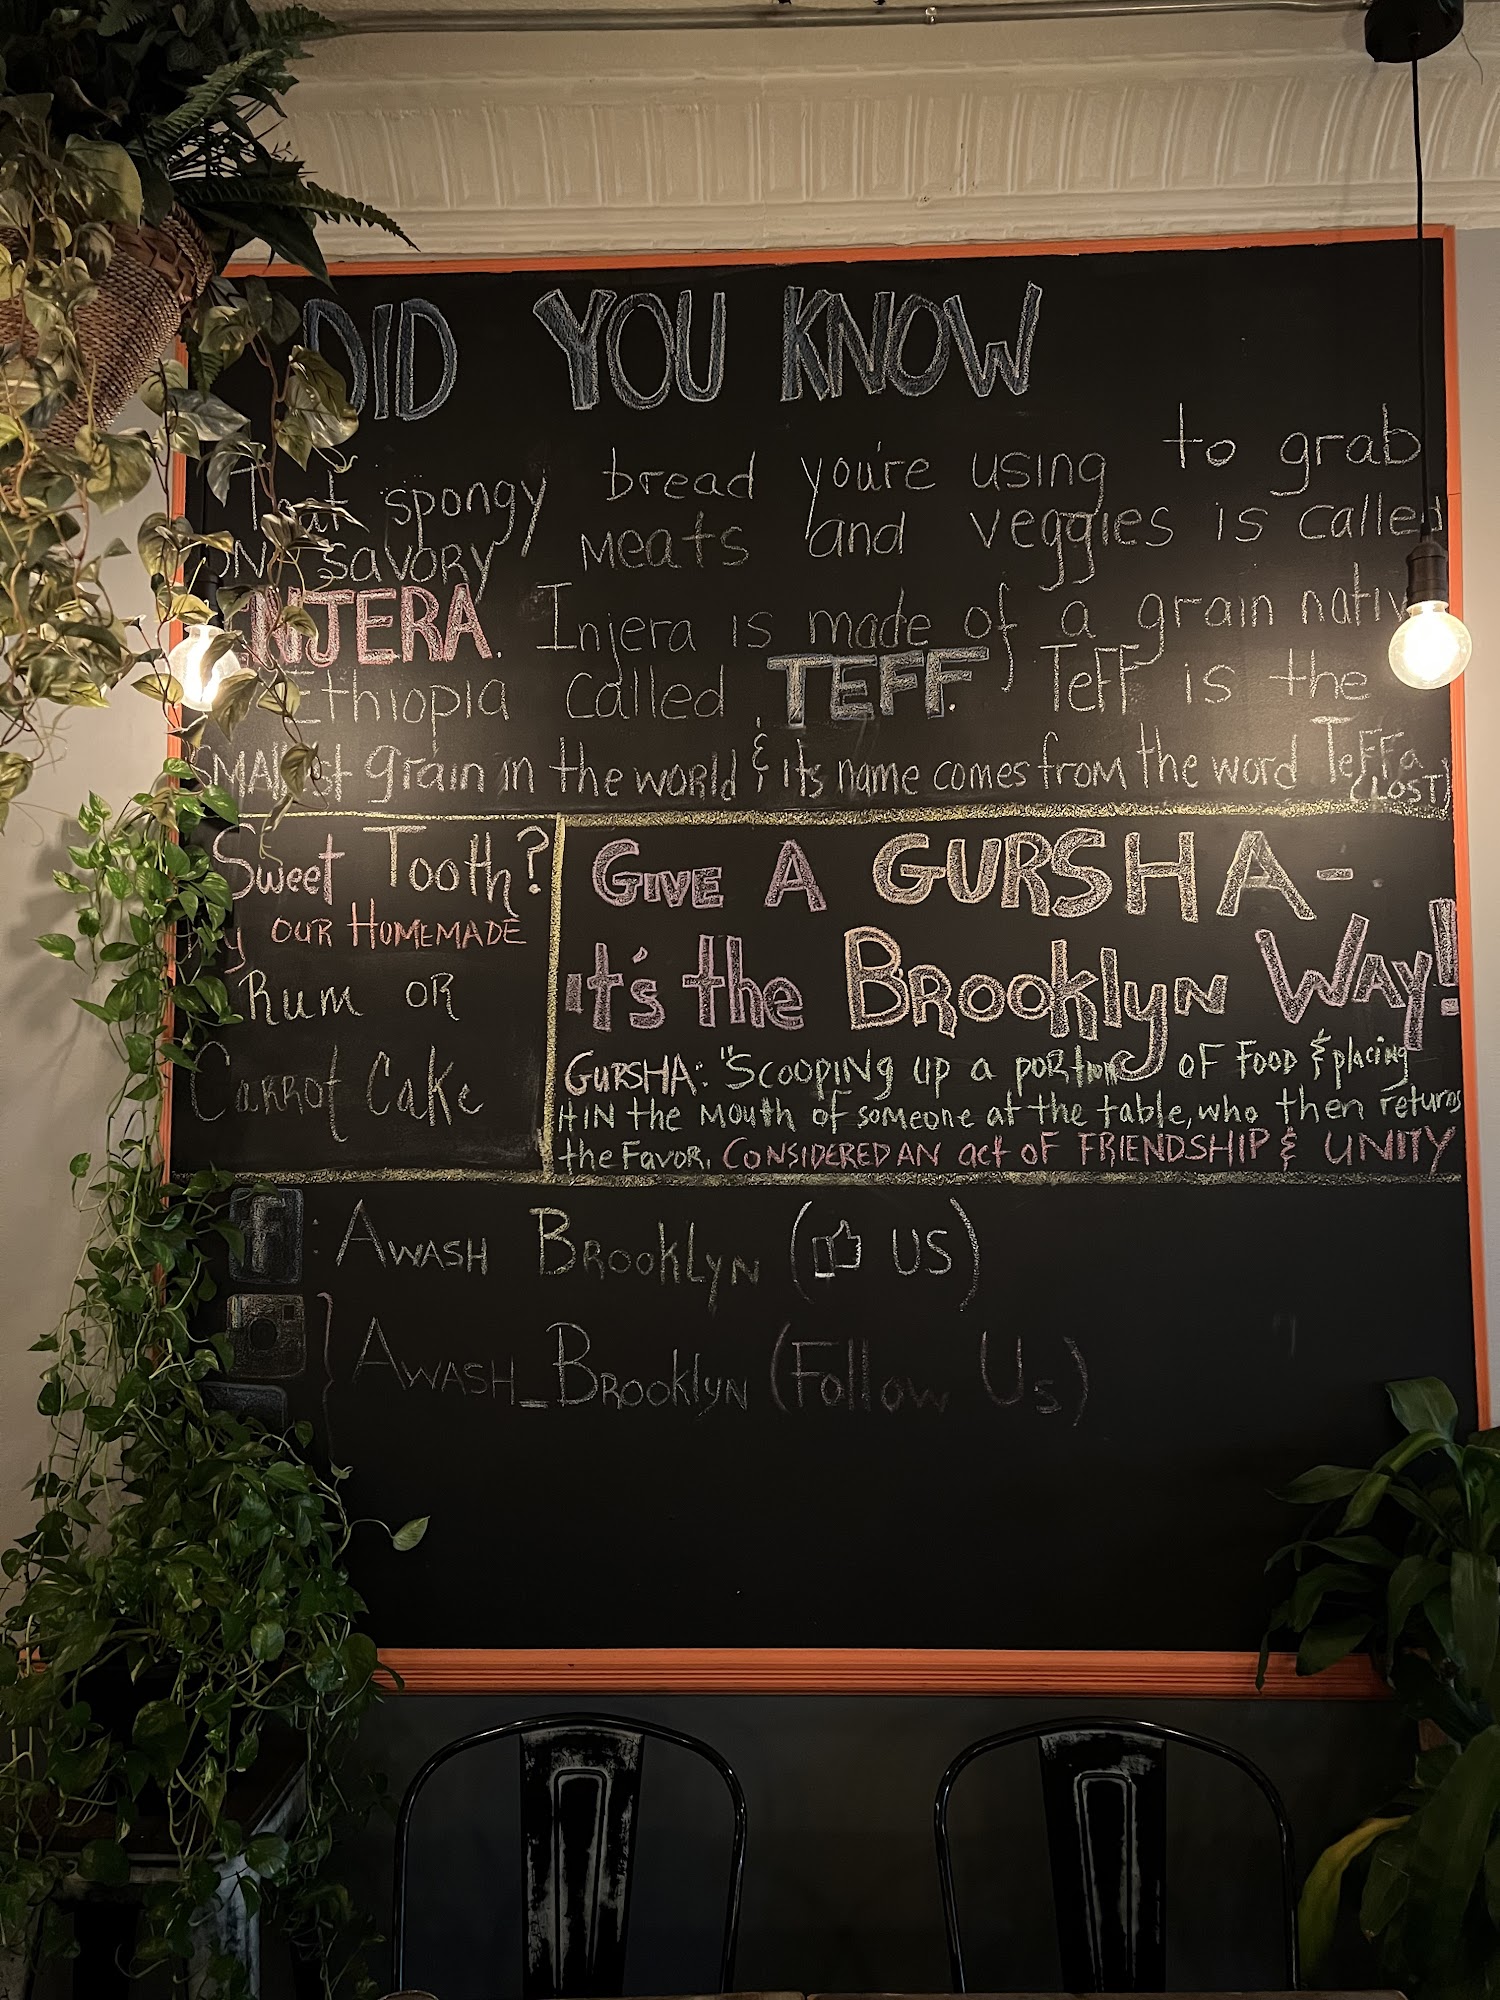 DID YOU KNOW
That spongy bread you're using to grab
ON SAVORY MEATS and veggies is called
INJERA. Injera is made of a grain native
Ethiopia called TEFF. Teff is the
SMALLEST grain in the WORLD & its name comes from the word Teffa
(LOST)
Sweet Tooth?
try OUR HOMEMADE
Rum OR
Carrot Cake
GIVE A GURSHA -
it's the BROOKLYN WAY!
GURSHA: "Scooping up a portion OF FOOD & placing
it IN the Mouth of someone at the table, who then returns
the FAVOR. CONSIDERED AN act OF FRIENDSHIP & UNITY
f : AWASH BROOKLYN (👍 US)
AWASH_BROOKLYN (Follow Us)